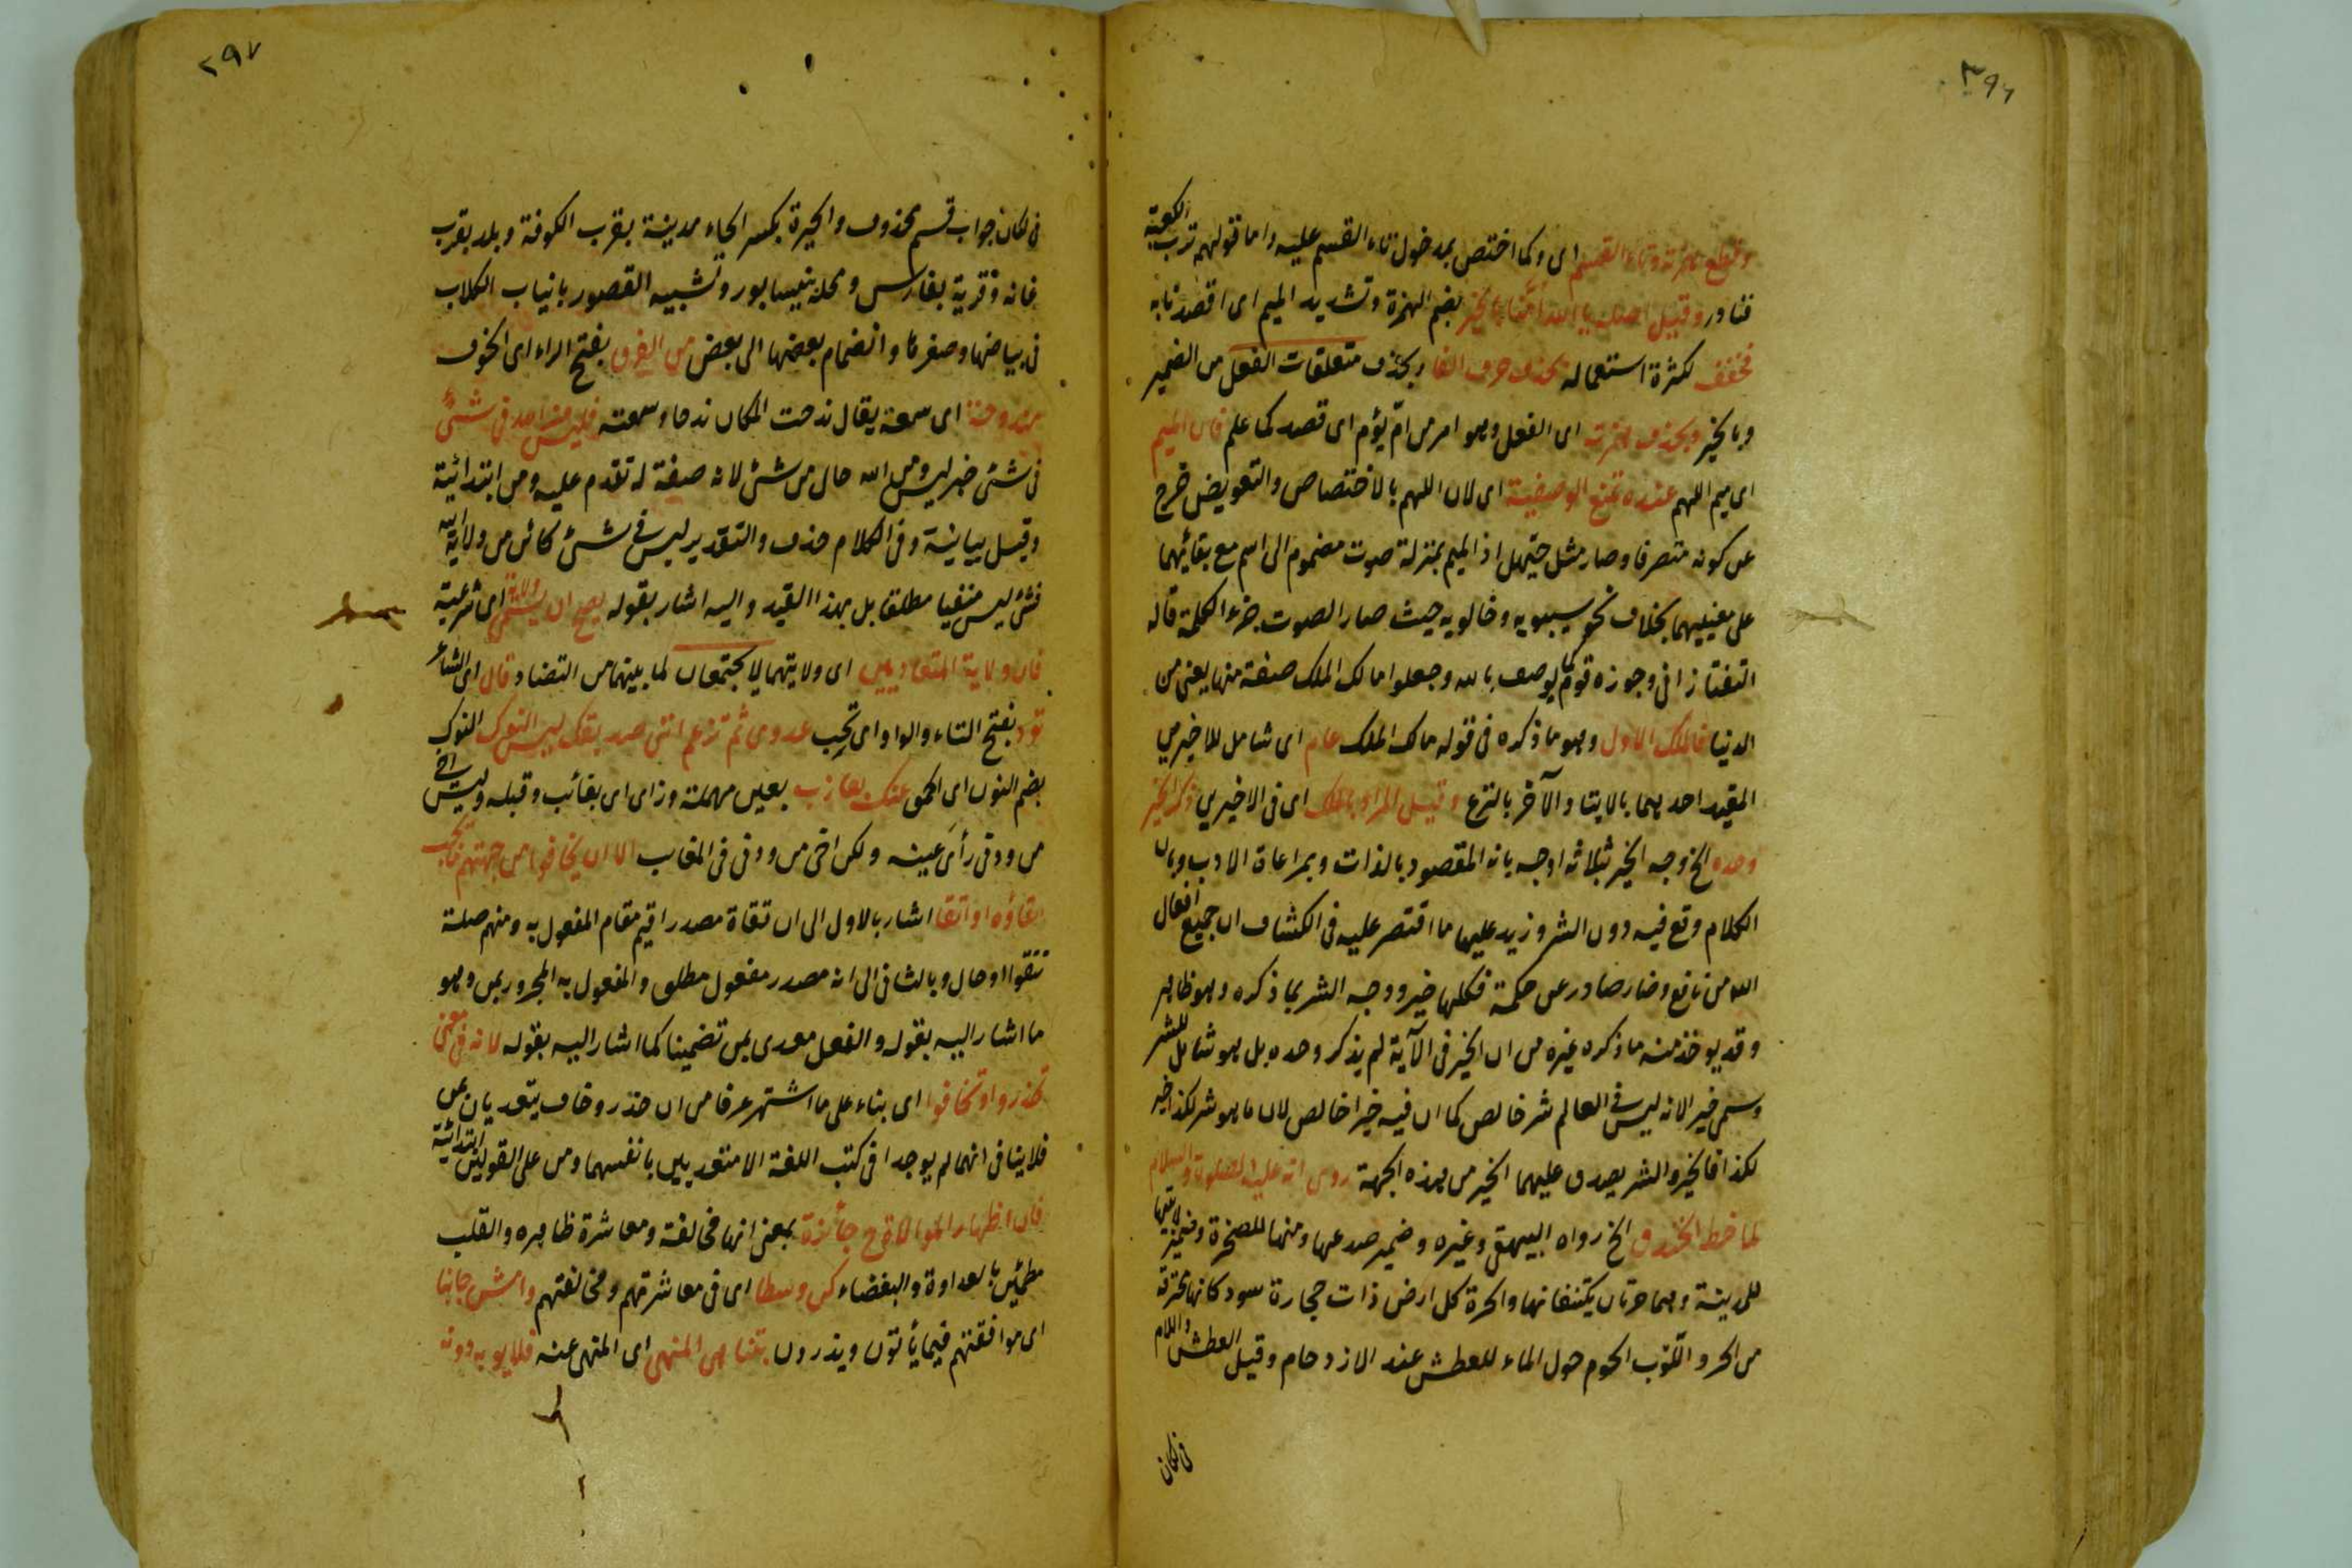 ٣٩٦
وقطع همزته وتاء القسم اى وكما اختص بدخول تاء القسم عليه واما قولهم ترب الكعبة
فنادر وقيل اصله يا الله امّنا بالخير بضم الهمزة وتشديد الميم اى اقصدنا به
فخفف لكثرة استعماله بحذف حرف النداء وبحذف متعلقات الفعل من الضمير
وبالخير وبحذف همزته اى الفعل وهو امر من امّ يؤم اى قصد كما علم فان الميم
اى ميم اللهم عنده تمنع الوصفية اى لان اللهم بالاختصاص والتعويض خرج
عن كونه متصرفا وصار مثل حيّهل اذ الميم بمنزلة صوت مضموم الى اسم مع بقائهما
على معنييهما بخلاف نحو سيبويه وخالويه حيث صار الصوت جزء الكلمة قاله
التفتازانى وجوزه قوم كما يوصف بالله وجعلوا مالك الملك صفة منها يعنى من
الدنيا فالملك الاول وهو ما ذكره فى قوله مالك الملك عام اى شامل للاخيرين
المقيد احدهما بالايتاء والآخر بالنزع وقيل المراد بالملك اى فى الاخيرين ذكر الخير
وحده الخ وجه الخير بثلاثة اوجه بانه المقصود بالذات وبمراعاة الادب وبان
الكلام وقع فيه دون الشر وزيد عليها ما اقتصر عليه فى الكشاف ان جميع افعال
الله من نافع وضار صادر عن حكمة فكلها خير ووجه الشر بما ذكره وهو ظاهر
وقد يوخذ منه ما ذكره غيره من ان الخير فى الآية لم يذكر وحده بل هو شامل للشر
وسمى خيرا لانه ليس فى العالم شر خالص كما ان فيه خيرا خالص لان ما هو شر لكذا خير
لكذا فالخير والشر يصدق عليهما الخير من هذه الجهة روى انه عليه الصلوة والسلام
لما خط الخندق الخ رواه البيهقى وغيره وضمير صدعها ومنها للصخرة وضمير لابتيها
للمدينة وهما حرتان يكتنفانها والحرة كل ارض ذات حجارة سود كانها محترقة
من الحر واللّوب الحوم حول الماء للعطش عند الازدحام وقيل العطش واللام
فى لكان
٣٩٧
فى لكان جواب قسم محذوف والحيرة بكسر الحاء مدينة بقرب الكوفة وبلد بقرب
عانه وقرية بفارس ومحلة بنيسابور وتشبيه القصور بانياب الكلاب
فى بياضها وصغرها وانضمام بعضها الى بعض من الفرق بفتح الراء اى الخوف
مندوحة اى سعة يقال ندحت المكان ندحا وسعته فليس من الله فى شئ
فى شئ خبر ليس ومن الله حال من شئ لانه صفة له تقدم عليه ومن ابتدائية
وقيل بيانية وفى الكلام حذف والتقدير ليس فى شئ كائن من ولاية الله
فشئ ليس منفيا مطلقا بل بهذا القيد واليه اشار بقوله يصح ان يسمى ولاية اى شرعية
فان ولاية المتعاديين اى ولايتهما لا يجتمعان لما بينهما من التضاد قال اى الشاعر
تود بفتح التاء والواو اى تحِب عدوى ثم تزعم انّنى صديقك ليس النوك النوك
بضم النون اى الحمق عنك بعازب بعين مهملة وزاى اى بغائب وقبله وليس اخى
من ودنى رأى عينه ولكن اخى من ودنى فى المغايب الا ان يخافوا من جهتهم ما يجب
اتقاؤه او اتقاء اشار بالاول الى ان تقاة مصدر اقيم مقام المفعول به ومنهم صلة
تتقوا او حال وبالثانى الى انه مصدر مفعول مطلق والمفعول به المجرور بمن وهو
ما اشار اليه بقوله والفعل معدى بمن تضمينا كما اشار اليه بقوله لانه فى معنى
تحذروا وتخافوا اى بناء على ما اشتهر عرفا من ان حذر وخاف يتعديان بمن
فلا ينافى انهما لم يوجدا فى كتب اللغة الا متعديين بانفسهما ومن على القولين ابتدائية
فان اظهار الموالاة ح جائزة بمعنى انها مخالفة ومعاشرة ظاهره والقلب
مطمئن بالعداوة والبغضاء كن وسطا اى فى معاشرتهم ومخالفتهم وامش جانبا
اى موافقتهم فيما يأتون ويذرون بتناهى المنهى اى المنهى عنه فلا يوبه دونه